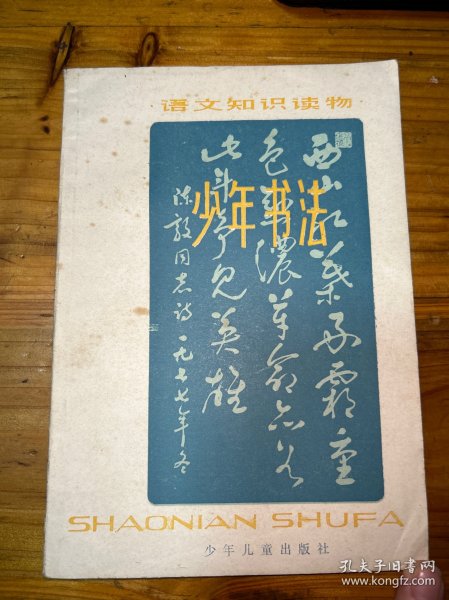 语文知识读物
少年书法
西山红葉好霜重
色愈濃革命亦如
此斗争见英雄
陈毅同志诗一九七七年冬
SHAONIAN SHUFA
少年儿童出版社
孔夫子旧书网
www.kongfz.com